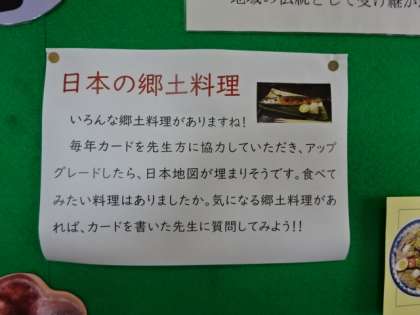 地域の伝統として受け継が
日本の郷土料理
いろんな郷土料理がありますね!
毎年カードを先生方に協力していただき、アップ
グレードしたら、日本地図が埋まりそうです。食べて
みたい料理はありましたか。気になる郷土料理があ
れば、カードを書いた先生に質問してみよう!!